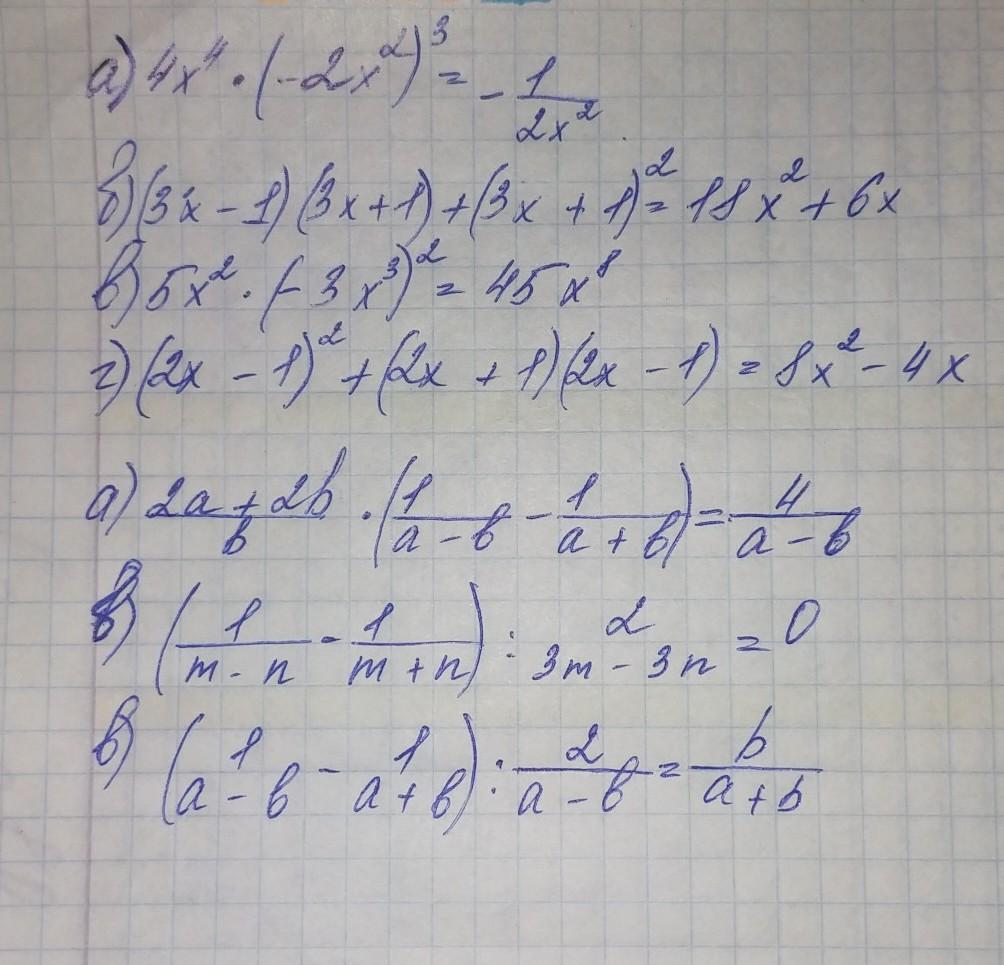 а) 4x⁴ · (-2x²)³ = - 1/(2x²)
б) (3x - 1)(3x + 1) + (3x + 1)² = 18x² + 6x
в) 5x² · (-3x³)² = 45x⁸
г) (2x - 1)² + (2x + 1)(2x - 1) = 8x² - 4x
а) (2a + 2b)/b · (1/(a - b) - 1/(a + b)) = 4/(a - b)
б) (1/(m - n) - 1/(m + n)) : 2/(3m - 3n) = 0
в) (1/(a - b) - 1/(a + b)) : 2/(a - b) = b/(a + b)